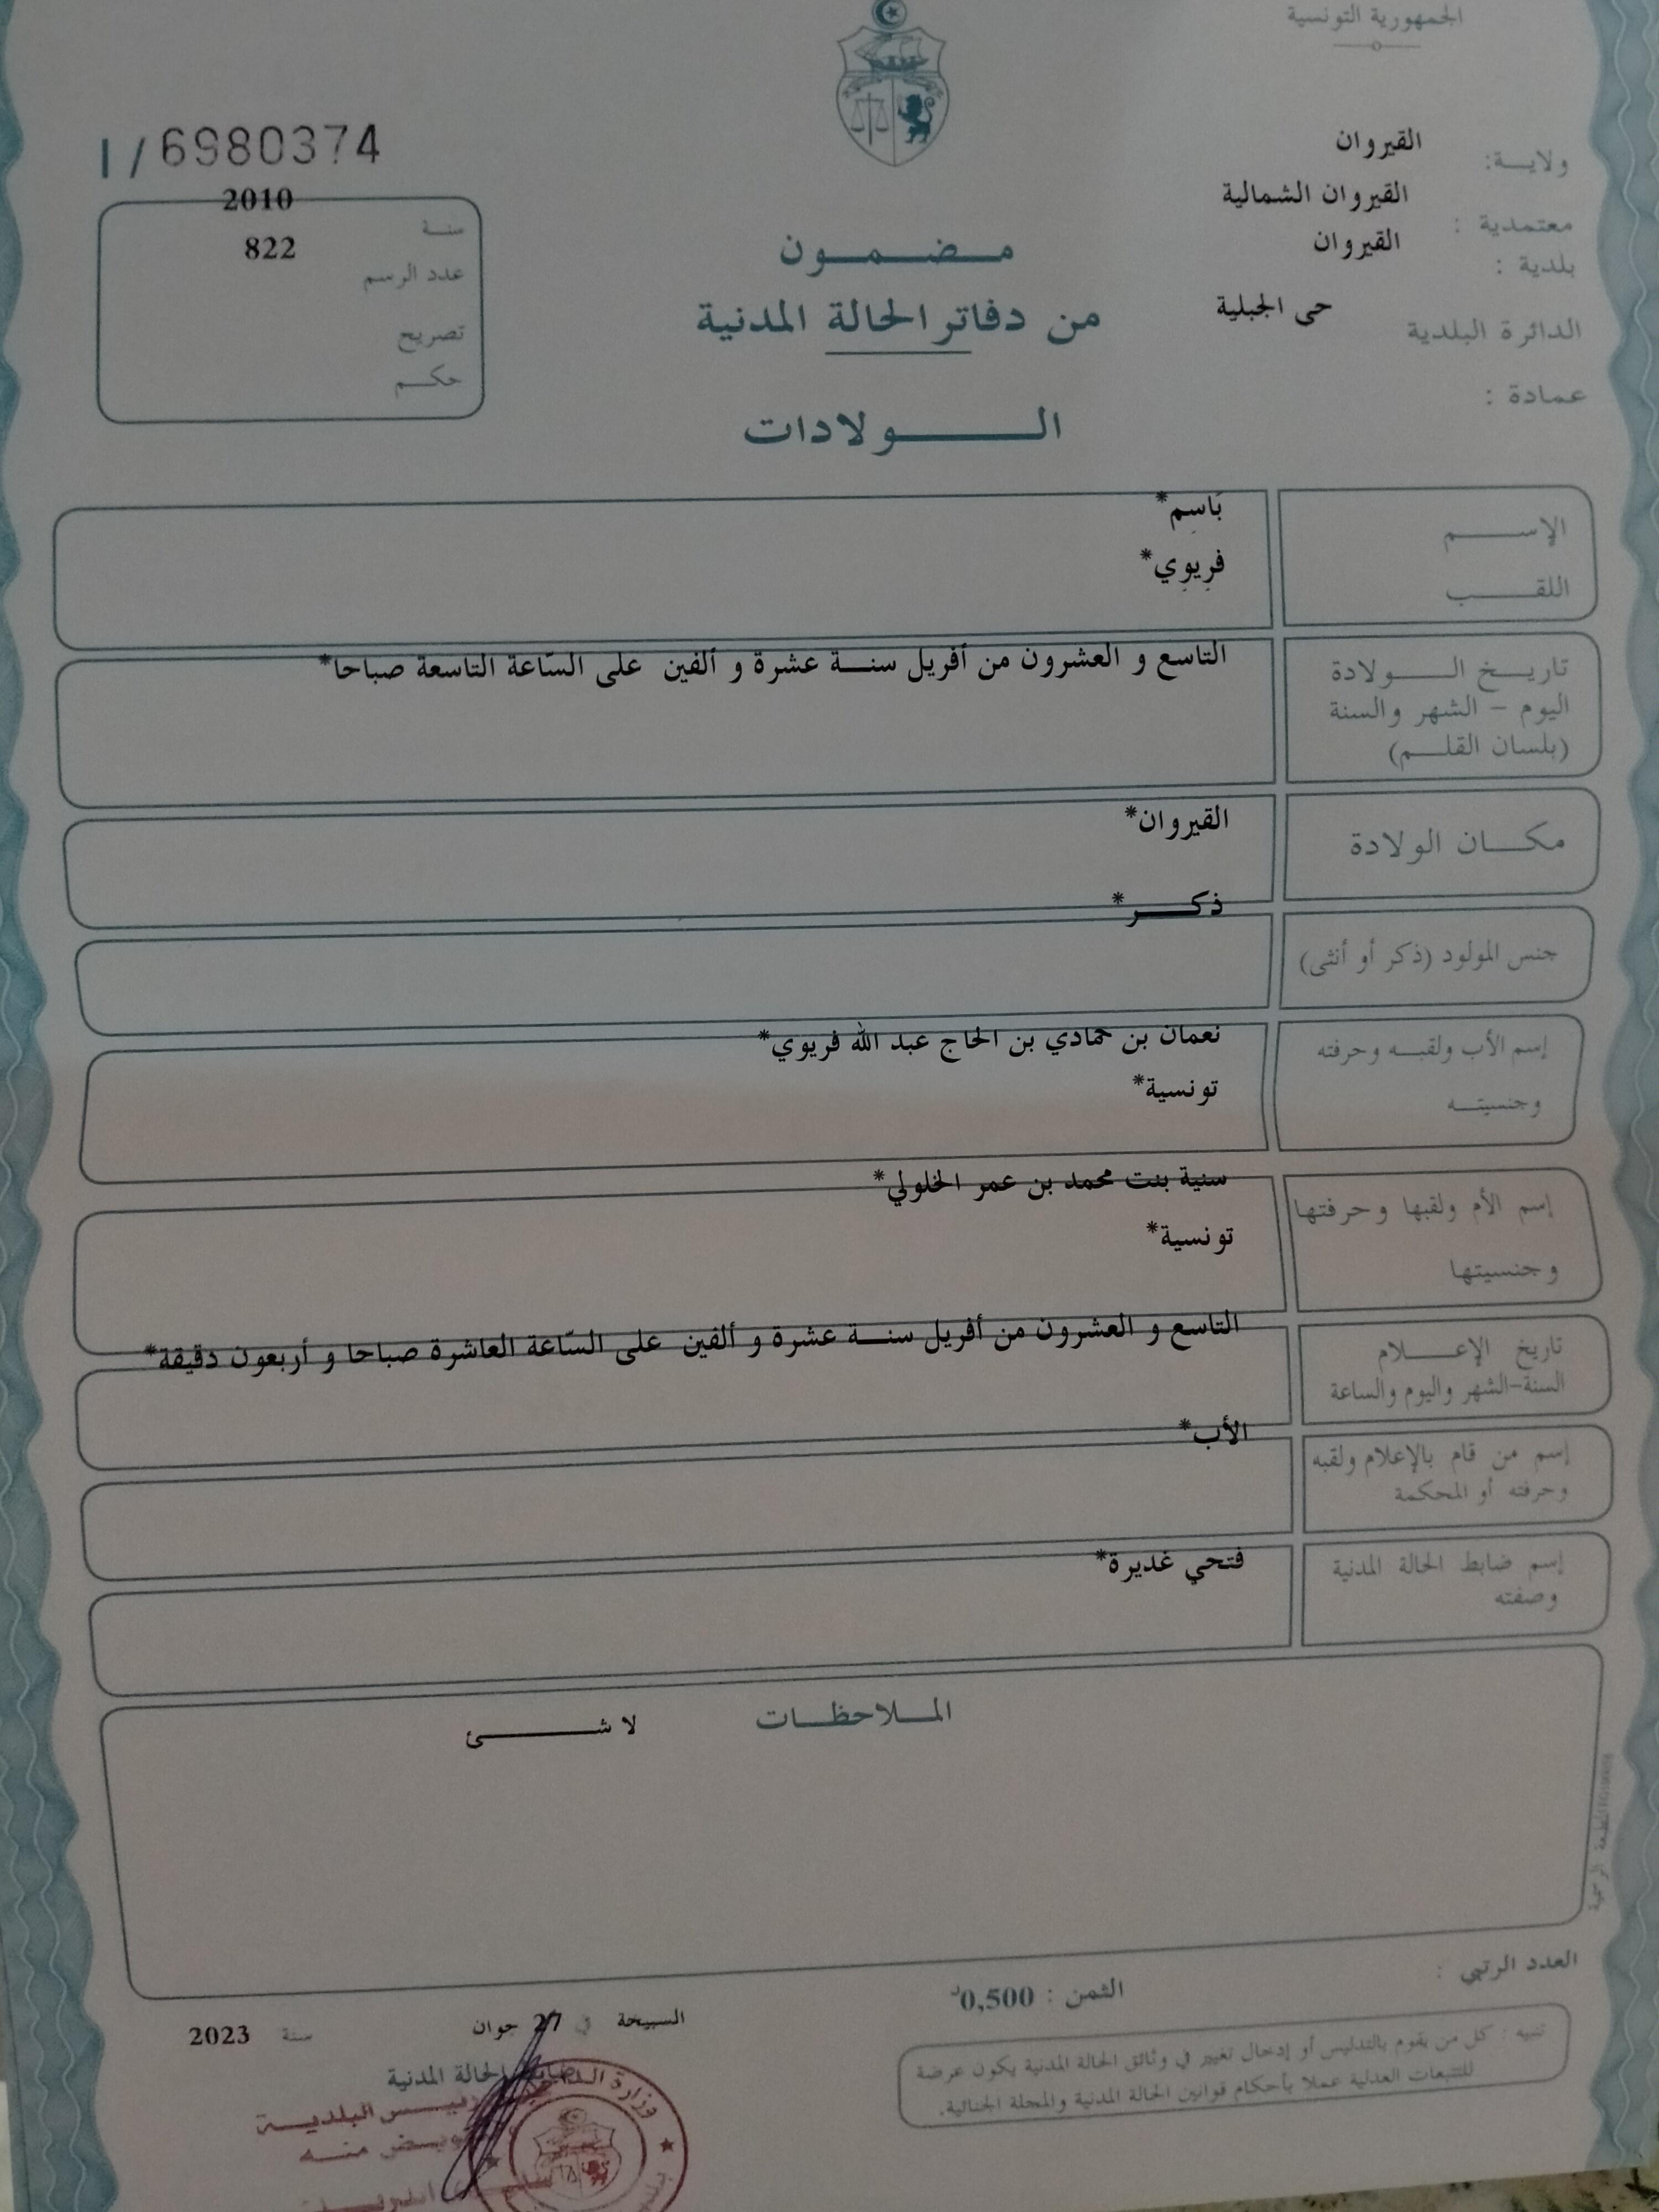 الجمهورية التونسية
ولاية: القيروان
معتمدية : القيروان الشمالية
بلدية : القيروان
الدائرة البلدية حى الجبلية
عمادة :
I / 6980374
سنة 2010
عدد الرسم 822
تصريح
حكم
مضمون
من دفاتر الحالة المدنية
الولادات
الإسم بَاسِم*
اللقب فريوي*
تاريخ الولادة التاسع و العشرون من أفريل سنة عشرة و ألفين على السّاعة التاسعة صباحا*
اليوم – الشهر والسنة
(بلسان القلم)
مكان الولادة القيروان*
جنس المولود (ذكر أو أنثى) ذكر*
إسم الأب ولقبه وحرفته نعمان بن حمادي بن الحاج عبد الله فريوي*
وجنسيته تونسية*
إسم الأم ولقبها وحرفتها سنية بنت محمد بن عمر الخلولي*
وجنسيتها تونسية*
تاريخ الإعلام التاسع و العشرون من أفريل سنة عشرة و ألفين على السّاعة العاشرة صباحا و أربعون دقيقة*
السنة-الشهر واليوم والساعة
إسم من قام بالإعلام ولقبه الأب*
وحرفته أو المحكمة
إسم ضابط الحالة المدنية فتحي غديرة*
وصفته
الملاحظات لا شئ
العدد الرتبي :
الثمن : 0,500د
السبيخة في 27 جوان سنة 2023
تنبيه : كل من يقوم بالتدليس أو إدخال تغيير في وثائق الحالة المدنية يكون عرضة
للتتبعات العدلية عملا بأحكام قوانين الحالة المدنية والمجلة الجنائية.
ضابط الحالة المدنية
رئيس البلدية
وزارة